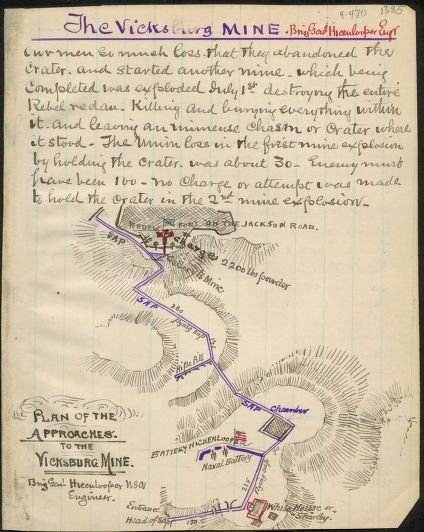 4-470 1385
The Vicksburg MINE. - Brig Genl Hickenlooper Engr
our men so much loss. that they abandoned the
Crater. and started another mine - which being
completed was exploded July 1st destroying the entire
Rebel redan. Killing and burying everything within
it. and leaving an immense Chasm or Crater where
it stood - The Union loss in the first mine explosion
by holding the crater. was about 30 - Enemy must
have been 100 - no Charge or attempt was made
to hold the Crater in the 2nd mine explosion -
REBEL FORT ON THE JACKSON ROAD.
SAP
Charge 2200 lbs powder
Gallery to Mine
SAP
280
flying sap
150
Rifle Pit
SAP
Chamber
BATTERY HICKENLOOPER
Naval Battery
PLAN OF THE
APPROACHES.
TO THE
VICKSBURG MINE.
Brig Genl Hickenlooper U.S.V
Engineer.
225
flying sap
White House or
Shirley.
Entrance
Head of Sap
150